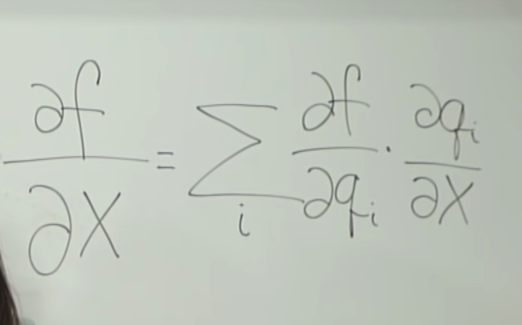 ∂f/∂X = Σ_i ∂f/∂q_i · ∂q_i/∂X